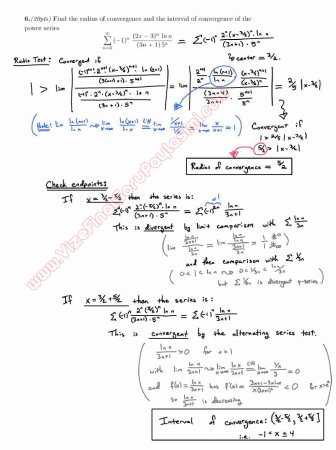 6.(20pts) Find the radius of convergence and the interval of convergence of the
power series
∑_{n=1}^{∞} (-1)^n (2x-3)^n ln n / (3n+1) 5^n = ∑ (-1)^n 2^n (x-3/2)^n · ln n / (3n+1) · 5^n
center = 3/2.
Ratio Test: Convergent if
1 > lim | (-1)^{n+1} · 2^{n+1} (x-3/2)^{n+1} · ln(n+1) / (3(n+1)+1) · 5^{n+1} / (-1)^n · 2^n · (x-3/2)^n · ln n / (3n+1) · 5^n | = lim | 2^{n+1}/2^n · ln(n+1)/ln n · (x-3/2)^{n+1}/(x-3/2)^n / (3n+4)/(3n+1) · 5^{n+1}/5^n | = 2/5 |x-3/2|
(Note: lim ln(n+1)/ln n → lim ln(x+1)/ln x = lim 1/(x+1) / 1/x = lim x/(x+1) = 1)
Convergent if
1 > 2/5 |x-3/2|
5/2 > |x-3/2|
Radius of convergence = 5/2
Check endpoints:
If x = 3/2 - 5/2 then the series is:
∑ (-1)^n 2^n (-5/2)^n · ln n / (3n+1) · 5^n = ∑ ln n / 3n+1
This is divergent by limit comparison with ∑ ln n / 3n
and then comparison with ∑ 1/3n
but ∑ 1/3n is divergent p-series
If x = 3/2 + 5/2 then the series is:
∑ (-1)^n 2^n (5/2)^n · ln n / (3n+1) · 5^n = ∑ (-1)^n ln n / 3n+1
This is convergent by the alternating series test.
ln n / 3n+1 > 0 for n > 1
with lim ln n / 3n+1 → lim ln x / 3x+1 = lim 1/x / 3 = 0
and f(x) = ln x / 3x+1 has
so ln n / 3n+1 is decreasing
Interval of convergence: (3/2 - 5/2, 3/2 + 5/2]
i.e. -1 < x ≤ 4